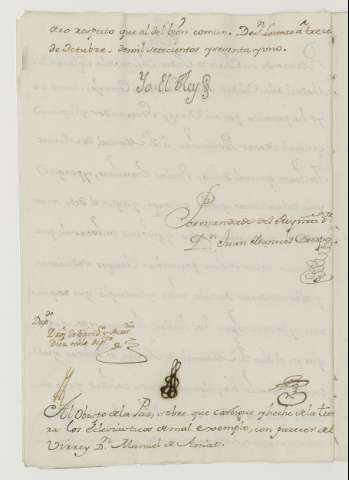 otro respecto que al del bien comun. De Sn. Lorenzo a trece
de Octubre de mil setecientos y setenta y uno.
Yo El Rey
Por mandado del Rey nro. Sr.
Dn. Juan Manuel
Al Obispo de la Paz, sobre que castigue y heche de la tier
ra los Eclesiasticos de mal exemplo, con parecer del
Virrey Dn. Manuel de Amat.